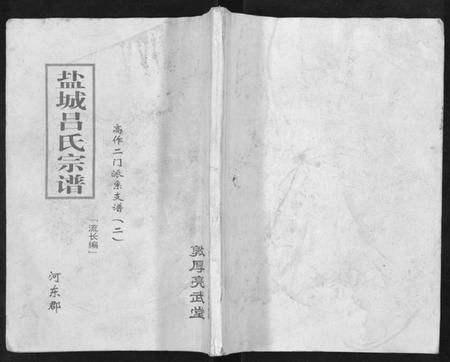 盐城吕氏宗谱
「流长编」
河东郡
高作二门派系支谱（二）
敦厚亮武堂